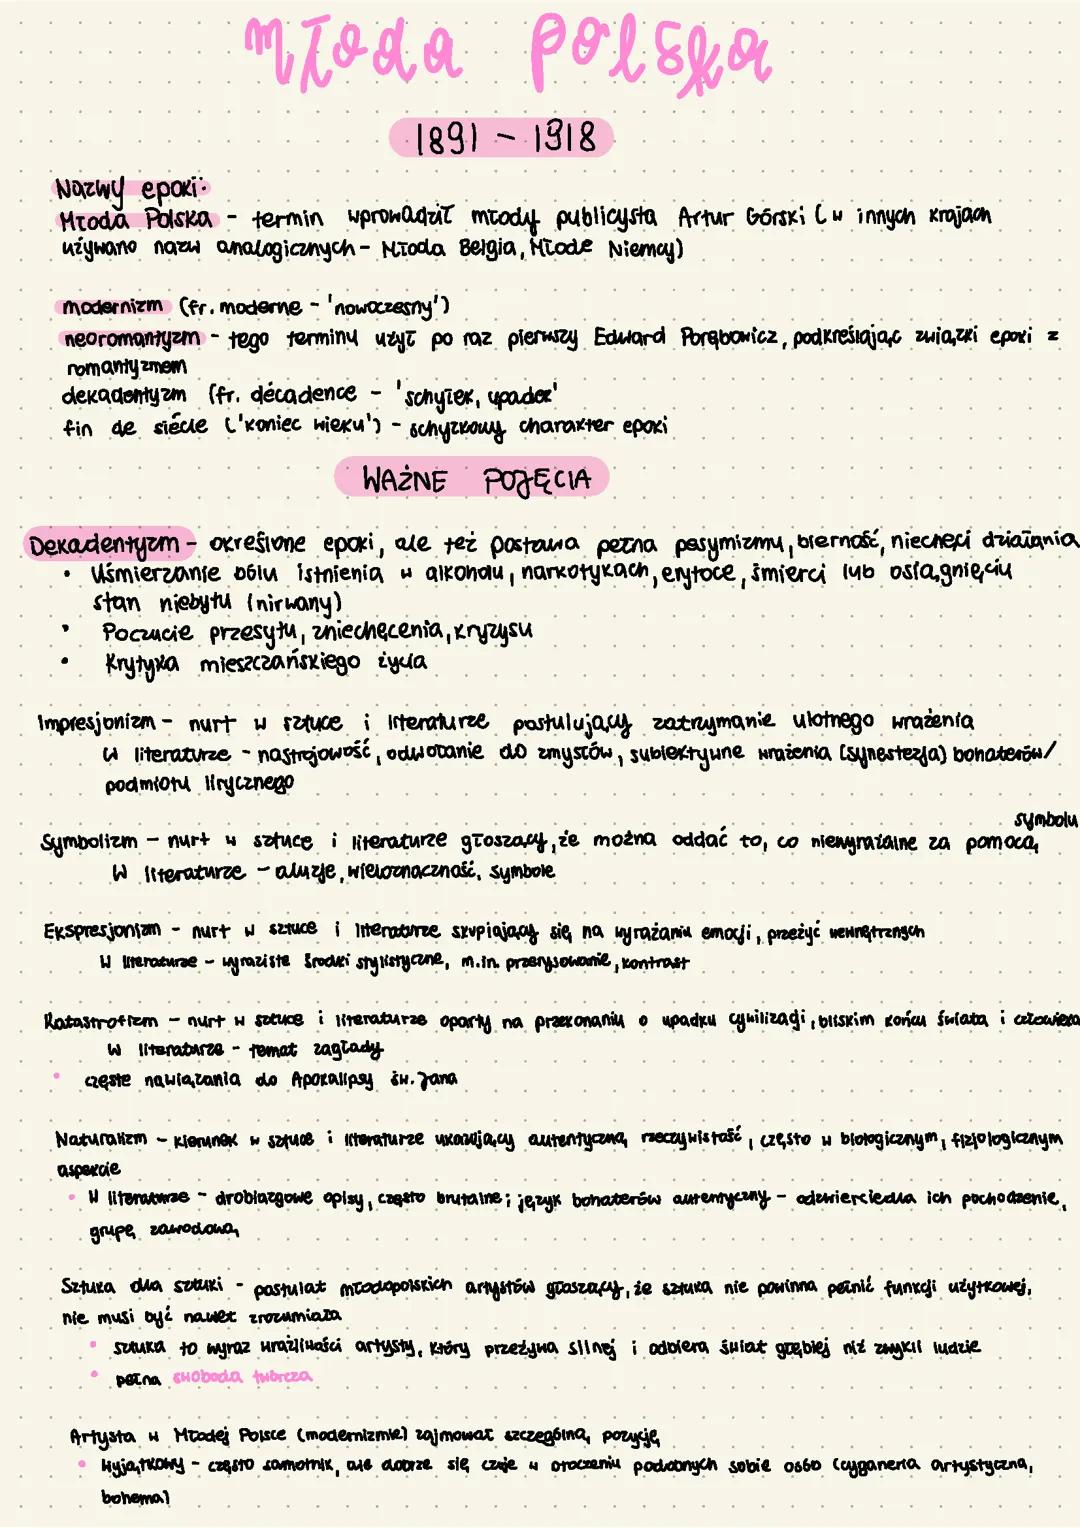 Młoda Polska
1891 - 1918
Nazwy epoki:
Młoda Polska - termin wprowadził młody publicysta Artur Górski (w innych krajach
używano nazw analogicznych - Młoda Belgia, Młode Niemcy)
modernizm (fr. moderne - 'nowoczesny')
neoromantyzm - tego terminu użył po raz pierwszy Edward Porębowicz, podkreślając związki epoki z
romantyzmem
dekadentyzm (fr. décadence - 'schyłek, upadek'
fin de siécle ('koniec wieku') - schyłkowy charakter epoki
WAŻNE POJĘCIA
Dekadentyzm - określone epoki, ale też postawa pełna pesymizmu, bierność, niechęci działania
• Uśmierzanie bólu istnienia w alkoholu, narkotykach, erytoce, śmierci lub osiągnięciu
stan niebytu (nirwany)
• Poczucie przesytu, zniechęcenia, kryzysu
• Krytyka mieszczańskiego życia
Impresjonizm - nurt w sztuce i literaturze postulujący zatrzymanie ulotnego wrażenia
W literaturze - nastrojowość, odwołanie do zmysłów, subiektywne wrażenia (synestezja) bohaterów/
podmiotu lirycznego
Symbolizm - nurt w sztuce i literaturze głoszący, że można oddać to, co niewyrażalne za pomocą symbolu
W literaturze - aluzje, wieloznaczność, symbole
Ekspresjonizm - nurt w sztuce i literaturze skupiający się na wyrażaniu emocji, przeżyć wewnętrznych
W literaturze - wyraziste środki stylistyczne, m.in. przerysowanie, kontrast
Katastrofizm - nurt w sztuce i literaturze oparty na przekonaniu o upadku cywilizacji, bliskim końcu świata i człowieka
W literaturze - temat zagłady
• częste nawiązania do Apokalipsy św. Jana
Naturalizm - kierunek w sztuce i literaturze ukazujący autentyczną rzeczywistość, często w biologicznym, fizjologicznym
aspekcie
• W literaturze - drobiazgowe opisy, często brutalne; język bohaterów autentyczny - odzwierciedla ich pochodzenie,
grupę zawodową
Sztuka dla sztuki - postulat młodopolskich artystów głoszący, że sztuka nie powinna pełnić funkcji użytkowej,
nie musi być nawet zrozumiała
• sztuka to wyraz wrażliwości artysty, który przeżywa silnej i odbiera świat głębiej niż zwykli ludzie
• pełna swoboda twórcza
Artysta w Młodej Polsce (modernizmie) zajmował szczególną pozycję
• Wyjątkowy - często samotnik, ale dobrze się czuje w otoczeniu podobnych sobie osób (cyganeria artystyczna,
bohema)